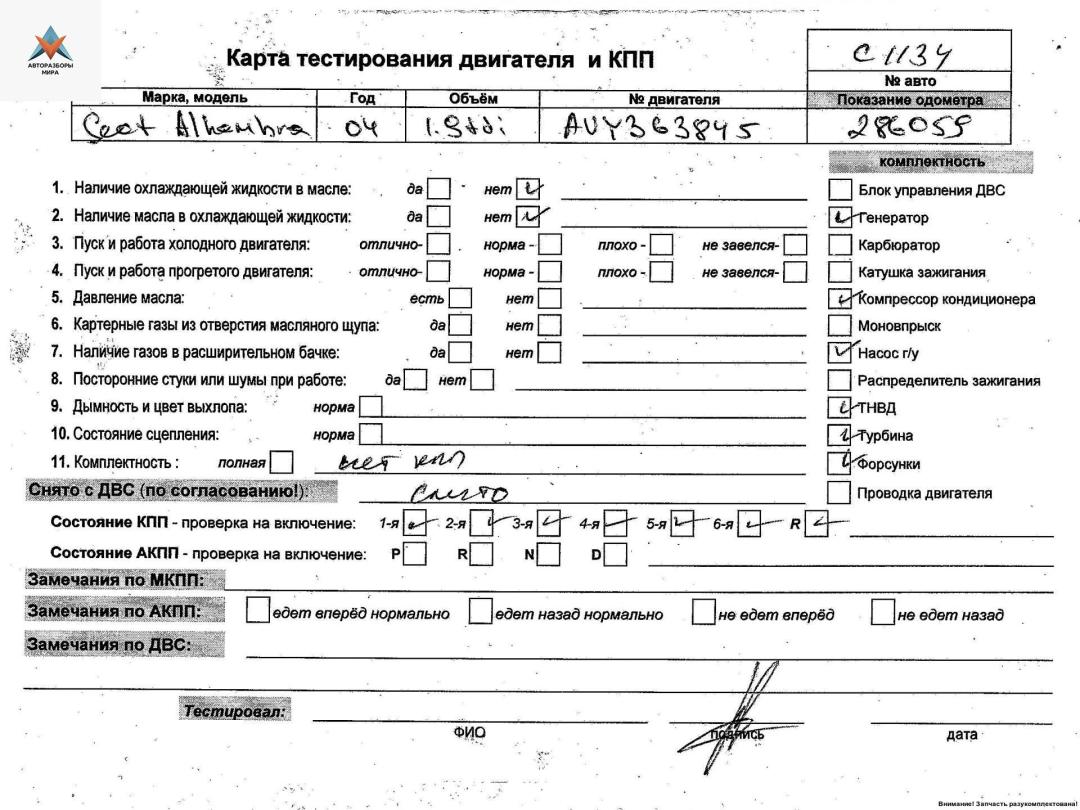 АВТОРАЗБОРЫ
МИРА
Карта тестирования двигателя и КПП
C1134
№ авто
Марка, модель Год Объём № двигателя Показание одометра
Seat Alhambra 04 1.9tdi AUY363845 286059
комплектность
1. Наличие охлаждающей жидкости в масле: да нет
Блок управления ДВС
2. Наличие масла в охлаждающей жидкости: да нет
Генератор
3. Пуск и работа холодного двигателя: отлично- норма - плохо - не завелся-
Карбюратор
4. Пуск и работа прогретого двигателя: отлично- норма - плохо - не завелся-
Катушка зажигания
5. Давление масла: есть нет
Компрессор кондиционера
6. Картерные газы из отверстия масляного щупа: да нет
Моновпрыск
7. Наличие газов в расширительном бачке: да нет
Насос г/у
8. Посторонние стуки или шумы при работе: да нет
Распределитель зажигания
9. Дымность и цвет выхлопа: норма
ТНВД
10. Состояние сцепления: норма
Турбина
11. Комплектность : полная нет кпп
Форсунки
Снято с ДВС (по согласованию!):
Проводка двигателя
Состояние КПП - проверка на включение: 1-я 2-я 3-я 4-я 5-я 6-я R
Состояние АКПП - проверка на включение: P R N D
Замечания по МКПП:
Замечания по АКПП: едет вперёд нормально едет назад нормально не едет вперёд не едет назад
Замечания по ДВС:
Тестировал:
ФИО подпись дата
Внимание! Запчасть разукомплектована!